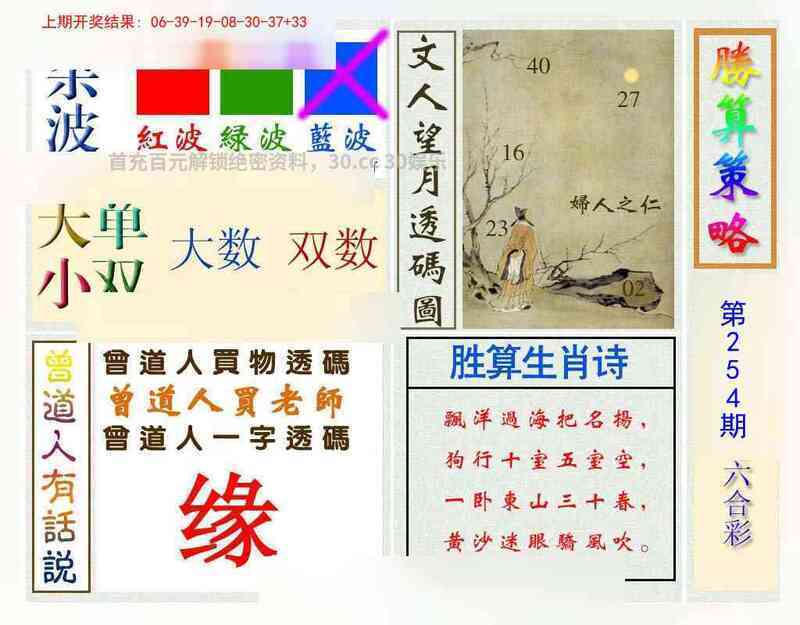 上期开奖结果：06-39-19-08-30-37+33
杀波
紅波
緑波
藍波
首充百元解锁绝密资料，30.cc30娱乐
大小
单双
大数
双数
文人望月透碼圖
40
27
16
婦人之仁
23
02
勝算策略
第254期
六合彩
曾道人有話説
曾道人買物透碼
曾道人買老師
曾道人一字透碼
缘
胜算生肖诗
飄洋過海把名揚，
狗行十室五室空，
一卧東山三十春，
黄沙迷眼驕風吹。